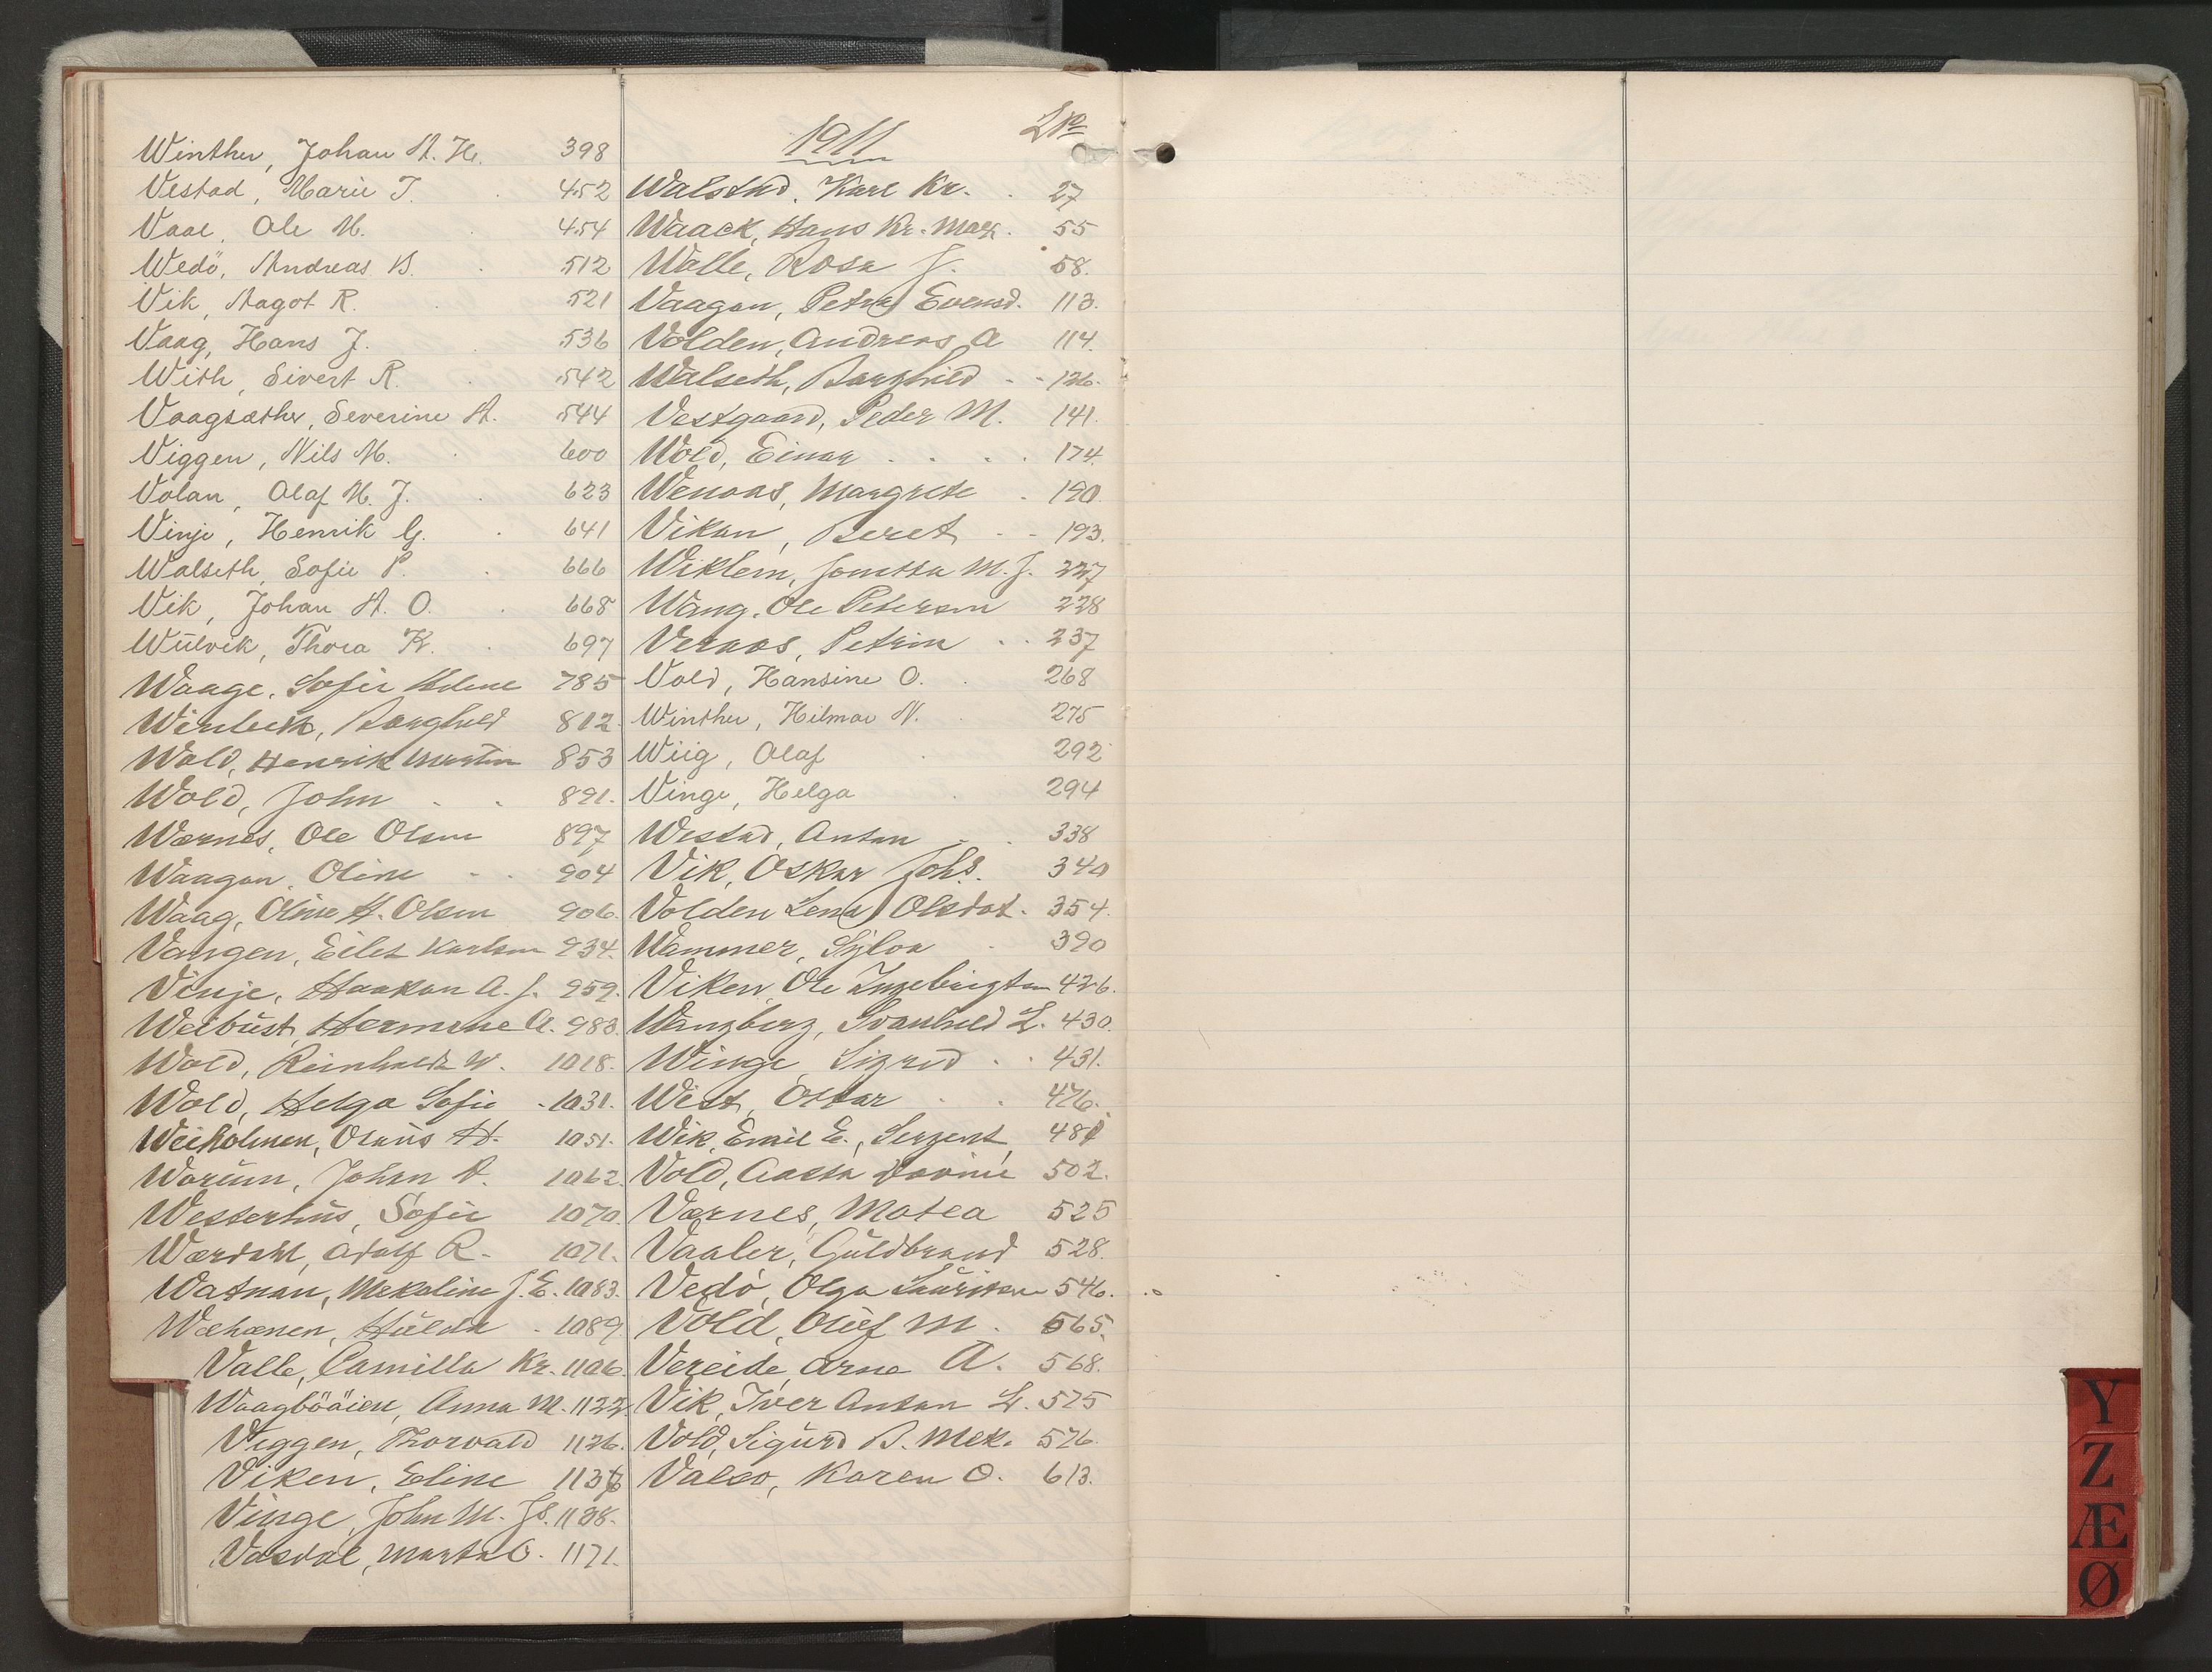 Winther, Johan A. H. 398
Vestad, Marie J. 452
Vaal, Ole M. 454
Wedö, Andreas B. 512
Vik, Aagot R. 521
Vaag, Hans J. 536
With, Sivert R. 542
Vaagsæther, Severine A. 544
Viggen, Nils M. 600
Volan, Olaf M. J. 623
Vinje, Henrik G. 641
Walseth, Sofie P. 666
Vik, Johan A. O. 668
Wulvik, Thora K. 697
Waage, Sofie Helene 785
Borghild 812
Wold, Henrik Martin 853
Wold, John 891.
Wærnes, Ole Olsen 897
Waagan, Oline 904
Waag, Oline H. Olsen 906.
Vangen, Eilet Karlsen 934.
Vinje, Haakon A. J. 959.
Weibust, Hermine A. 983.
Wold, Reinholdt W. 1018.
Wold, Helga Sofie 1031.
Weiholmen, Olaus H. 1051.
Worum, Johan A. 1062.
Westerhus, Sofie 1070.
Wærdahl, Adolf R. 1071.
Watnan, Mekoline J. E. 1083.
Wæhanen, Hulda 1089.
Valle, Camilla Kr. 1106.
Waagbööien, Anna M. 1122
Viggen, Thorvald 1126.
Viken, Eline 1136
Vinge, John M. Js. 1138.
Vasdal, Marta O. 1171.
1911 No
Walstad, Karl Kr. 27
Waack, Hans Kr. Marx. 55
Walle, Rosa J. 58.
Vaagan, Petra Evensd. 113.
Volden, Andreas A 114.
Walseth, Borghild 126.
Vestgaard, Peder M. 141.
Wold, Einar 174.
Wenaas, Margrete 190
Vikan, Beret 193.
Wiklem, Jonetta M. J. 227
Wang, Ole Petersen 228
Vernos, Petrin 237
Vold, Hansine O. 268
Winther, Hilmar N. 275
Wiig, Olaf 292
Vinge, Helga 294
Westad, Anton 338
Vik, Oskar Johs. 340
Volden Lena Olsdat. 354.
Wammer, Sylva 390
Viken, Ole Ingebrigtsen 426.
Wangberg, Svanhild L. 430.
Winge, Sigrid 431.
West, Ottar 476.
Wik, Emil E., Sergent, 481
Vold, Aasta Davine 502.
Værnes, Matea 525
Vaaler, Guldbrand 528.
Vedö, Olga Lauritsen 546.
Vold, Oluf M. 565.
Vereide, Arne A. 568.
Vik, Iver Anton L. 575
Vold, Sigurd B. Mek. 576.
Valso, Karen O. 613.
Y
Z
Æ
Ø